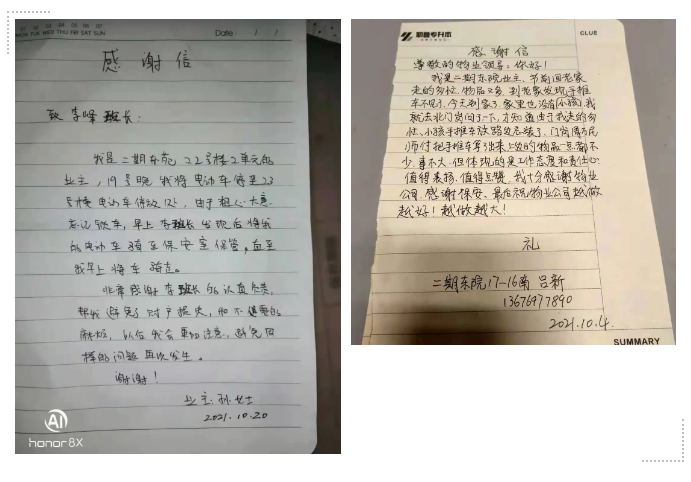 MON TUE WED THU FRI SAT SUN
Date / /
感谢信
致李峰班长:
我是二期东苑22号楼2单元的
业主,19号晚我将电动车停至23
号楼电动车停放处,由于粗心大意
忘记锁车,早上李班长发现后将我
的电动车骑至保安室保管,直至
我早上将车骑走。
非常感谢李班长的认真负责,
帮我避免了财产损失,和不必要的
麻烦,以后我会更加注意,避免同
样的问题再次发生。
谢谢!
业主:孙女士
2021.10.20
AI
honor 8X
耶鲁专升本
CLUE
感谢信
尊敬的物业领导:你好!
我是二期东院业主,节前回老家
走的匆忙,物品又多,到老家发现手推
车不见了,今天到家了,家里也没有(小孩)我
就去北门岗问了一下,才知道由于我走的匆
忙,小孩手推车放路边忘装了,门岗傅方民
师付把手推车拿到来上边的物品一点都不
少,事不大,但体现的是工作态度和责任心
值得表扬,值得点赞,我十分感谢物业
公司,感谢保安、最后祝物业公司越做
越好!越做越大!
礼
二期东院17-16南 吕新
13676977890
2021.10.4.
SUMMARY